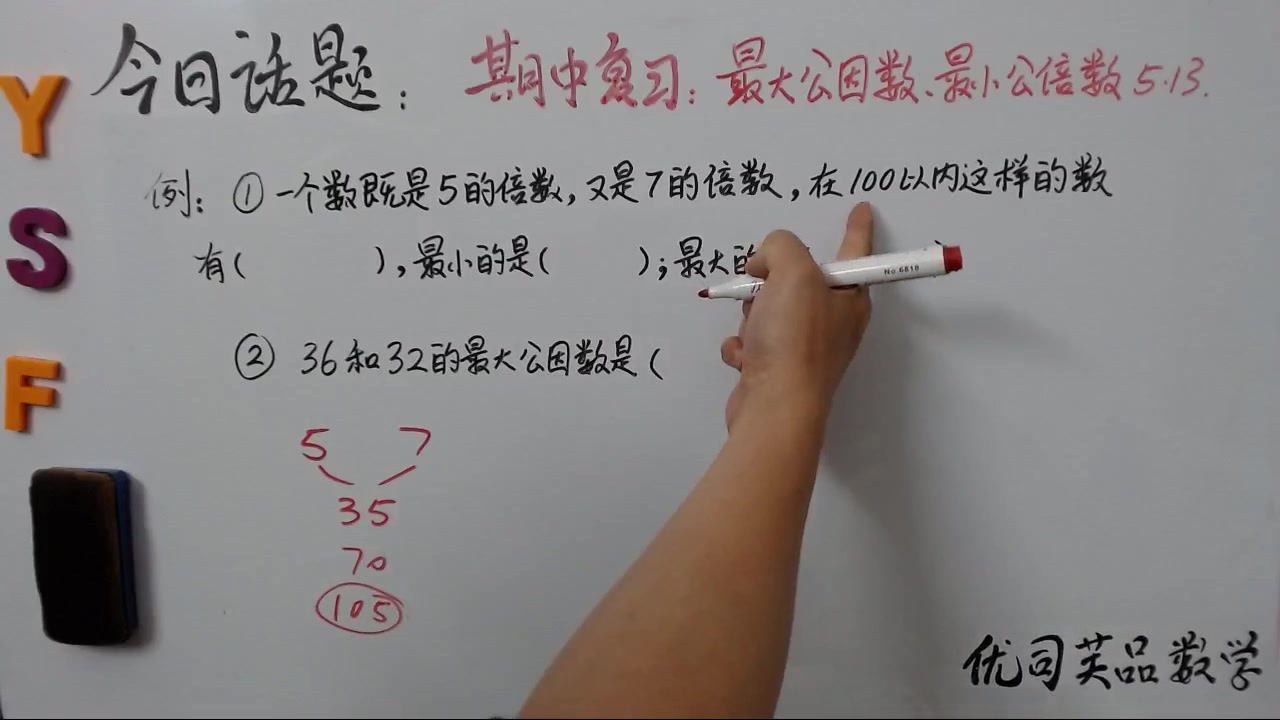 今日话题：
期中复习：最大公因数、最小公倍数 5.13.
例：① 一个数既是5的倍数，又是7的倍数，在100以内这样的数
有（ ），最小的是（ ）；最大的
② 36和32的最大公因数是（
5 7
35
70
105
Y
S
F
No 6818
优司芙品数学